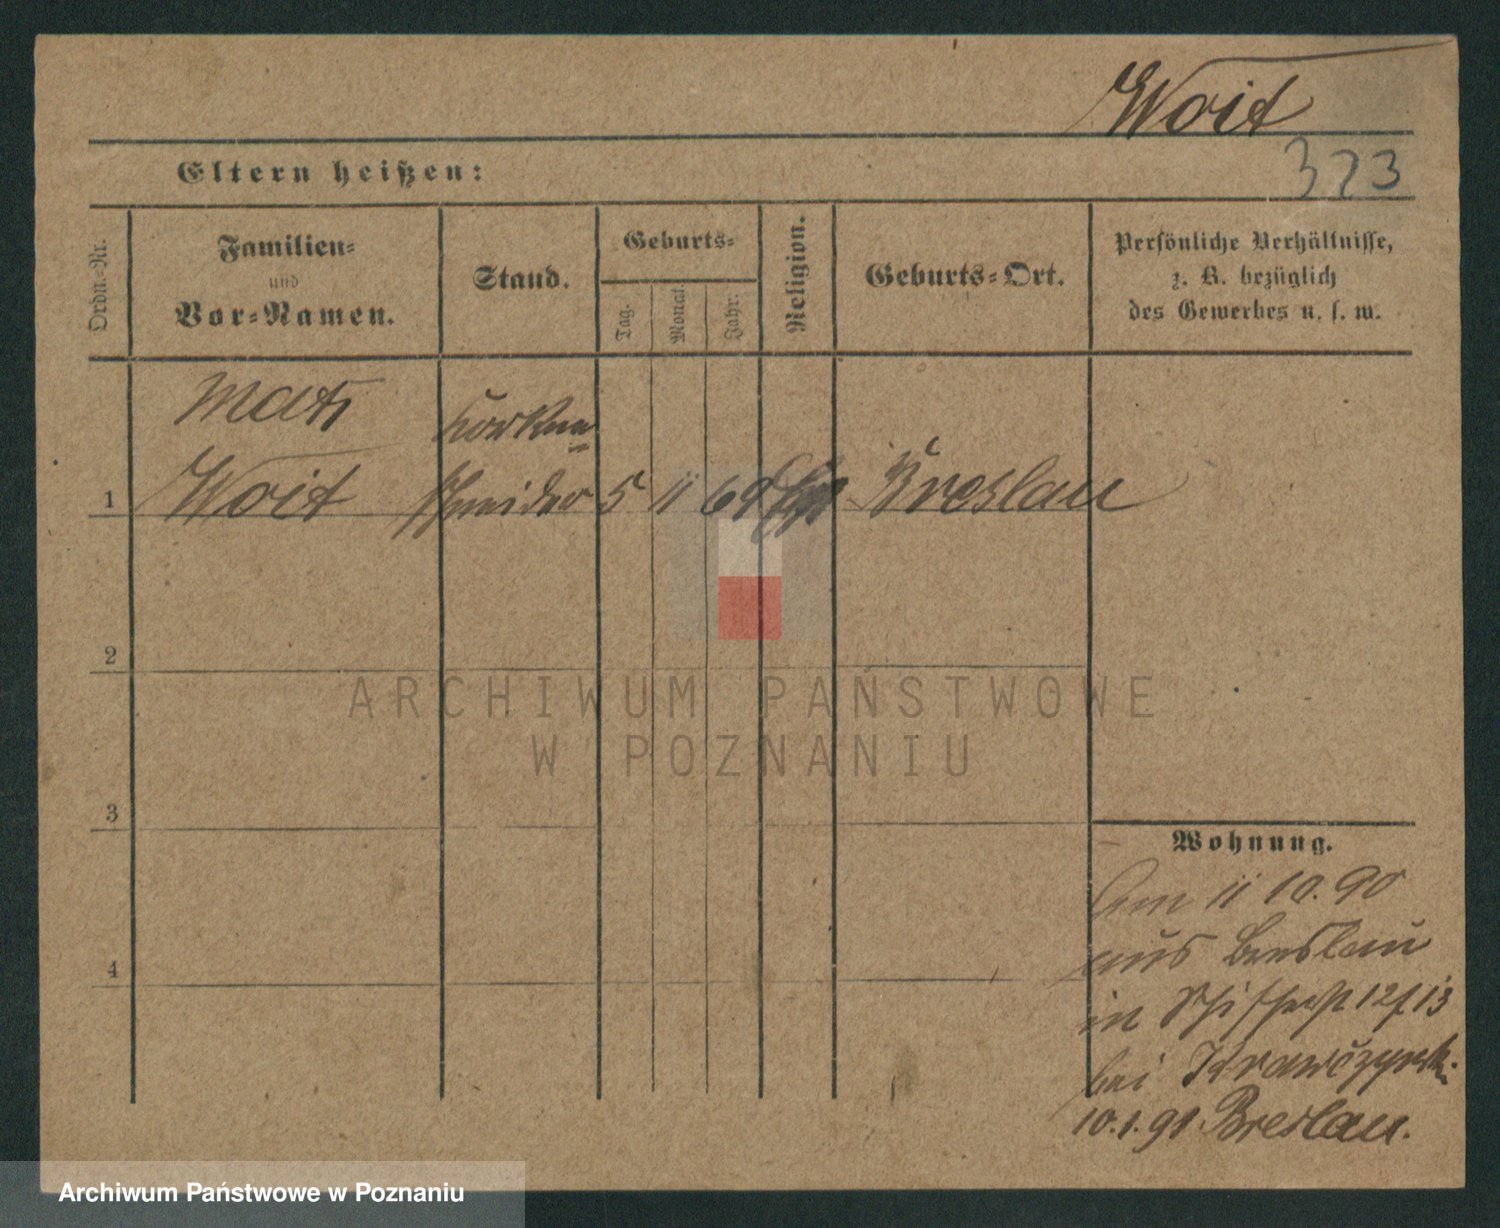 Woit
373
Eltern heißen:
Ordn.-Nr.
Familien-
und
Vor-Namen.
Stand.
Geburts-
Tag.
Monat.
Jahr.
Religion.
Geburts-Ort.
Persönliche Verhältnisse,
z. B. bezüglich
des Gewerbes u. s. w.
1 Woit Schneider 5 11 Breslau
2
3
4
ARCHIWUM PAŃSTWOWE
W POZNANIU
Wohnung.
Am 11 10. 90
aus Breslau
in 12/13
bei
10.1.91 Breslau.
Archiwum Państwowe w Poznaniu